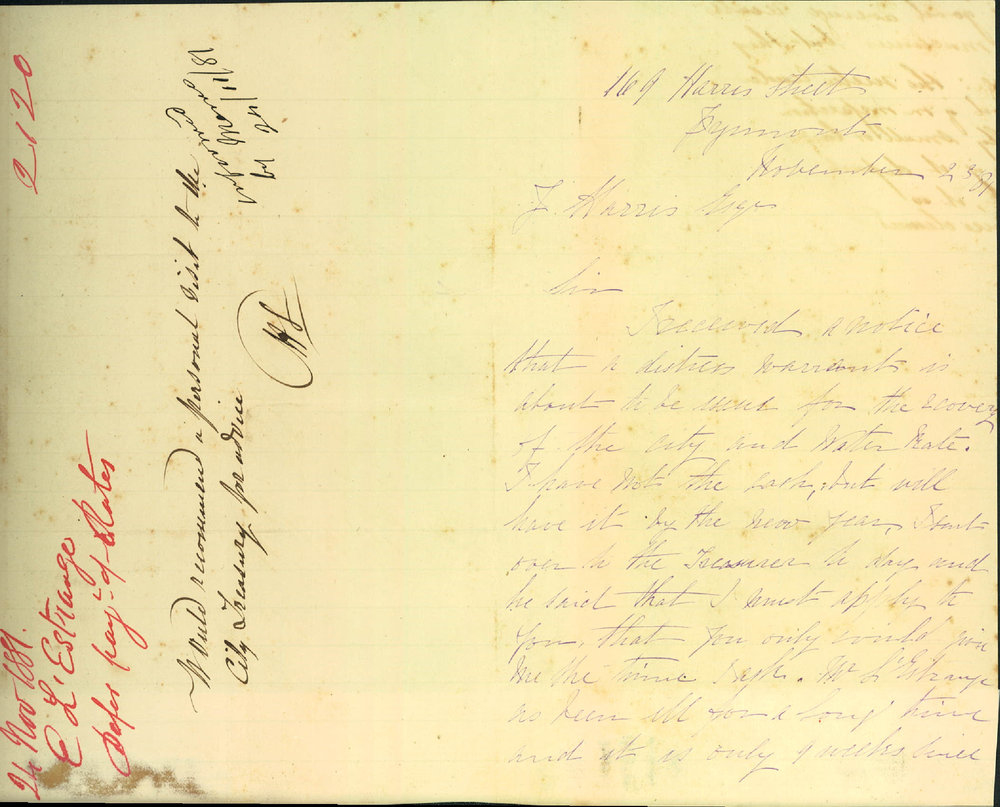 2120
24 Nov 1881.
E L'Estrange
Defer pay-t of Rates
Would recommend a personal visit to the
City Treasury for advice
by 24/11/81
169 Harris Street
Pyrmont
November 23 81
F. Harris Esqr
Sir
I received a notice
that a distress warrant is
about to be issued for the recovery
of the city and Water Rate.
I have not the cash, but will
have it by the new year, I sent
over to the Treasurer to day and
he said that I must apply to
you, that you only could give
me the time I ask. Mr L'Estrange
as been ill for a long time
and it is only 9 weeks